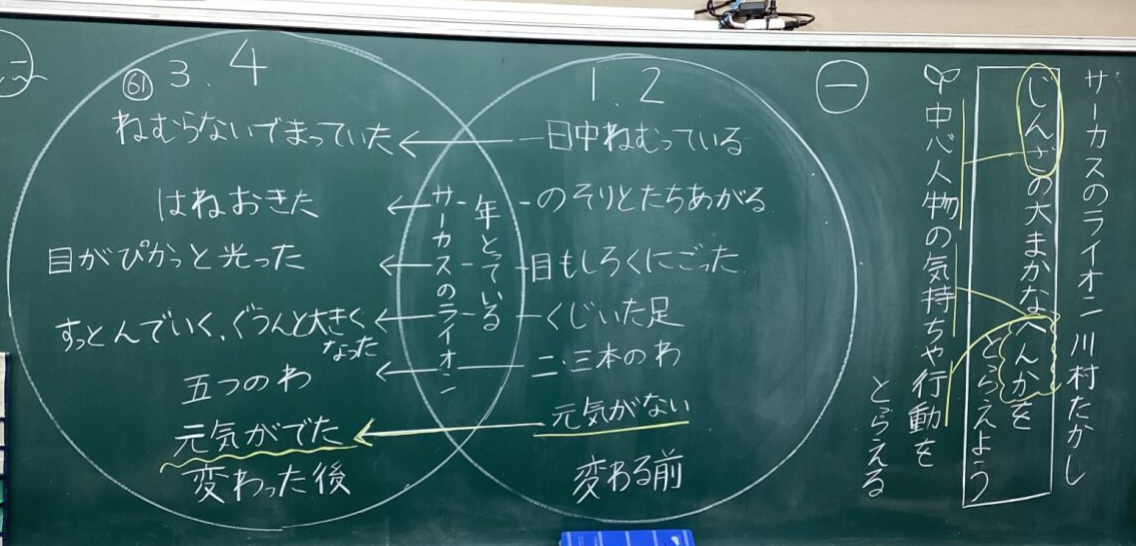 サーカスのライオン 川村たかし
じんざの大まかなへんかを
とらえよう
中心人物の気持ちや行動を
とらえる
一
1.2
一日中ねむっている
のそりとたちあがる
目もしろくにごった
くじいた足
二・三本のわ
元気がない
変わる前
年とっている
サーカスのライオン
3.4
61
ねむらないでまっていた
はねおきた
目がぴかっと光った
すっとんでいく、ぐうんと大きく
なった
五つのわ
元気がでた
変わった後
二